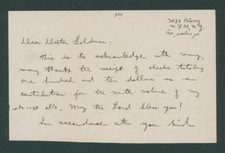 Dear Doctor Goldman,
This is to acknowledge with very
many thanks the receipt of checks totaling
one hundred and ten dollars as a
contribution for the
May the Lord bless you!
In accordance with your kind